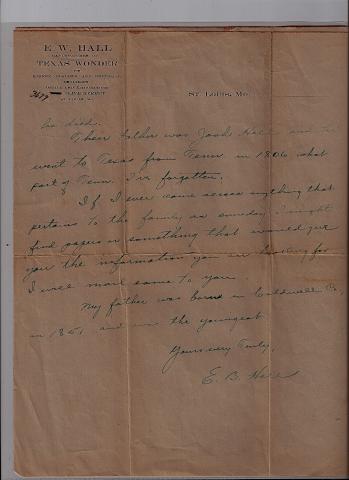 E. W. HALL
TEXAS WONDER
ST. LOUIS, MO.
St. Louis, Mo.
as did.
Their father was Josh Hall and he
went to Texas from Tenn. in 1806 what
part of Tenn. I've forgotten.
If I ever come across anything that
pertains to the family as someday I might
find papers or something that would give
you the information you are looking for
I will mail same to you.
My father was born in Caldwell Co.,
in 1851 and was the youngest
Yours very Truly,
E. B. Hall